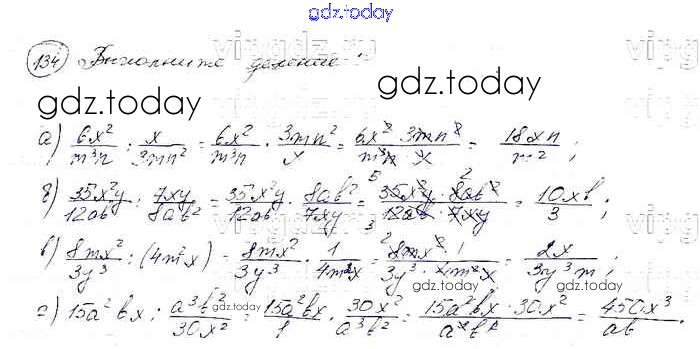 gdz.today
134 Выполните деление:
gdz.today gdz.today
а) 6x²/m³n : x/3mn² = 6x²/m³n · 3mn²/x = 6x² 3mn²/m³n x = 18xn/m² ;
б) 35x²y/12ab : 7xy/8ab² = 35x²y/12ab · 8ab²/7xy = 35x²y · 8ab²/12ab · 7xy = 10xb/3 ;
в) 8mx²/3y³ : (4m²x) = 8mx²/3y³ · 1/4m²x = 8mx² · 1/3y³ · 4m²x = 2x/3y³m ;
г) 15a²bx : a³b²/30x² = 15a²bx/1 · 30x²/a³b² = 15a²bx · 30x²/a³b² = 450x³/ab .
gdz.today gdz.today